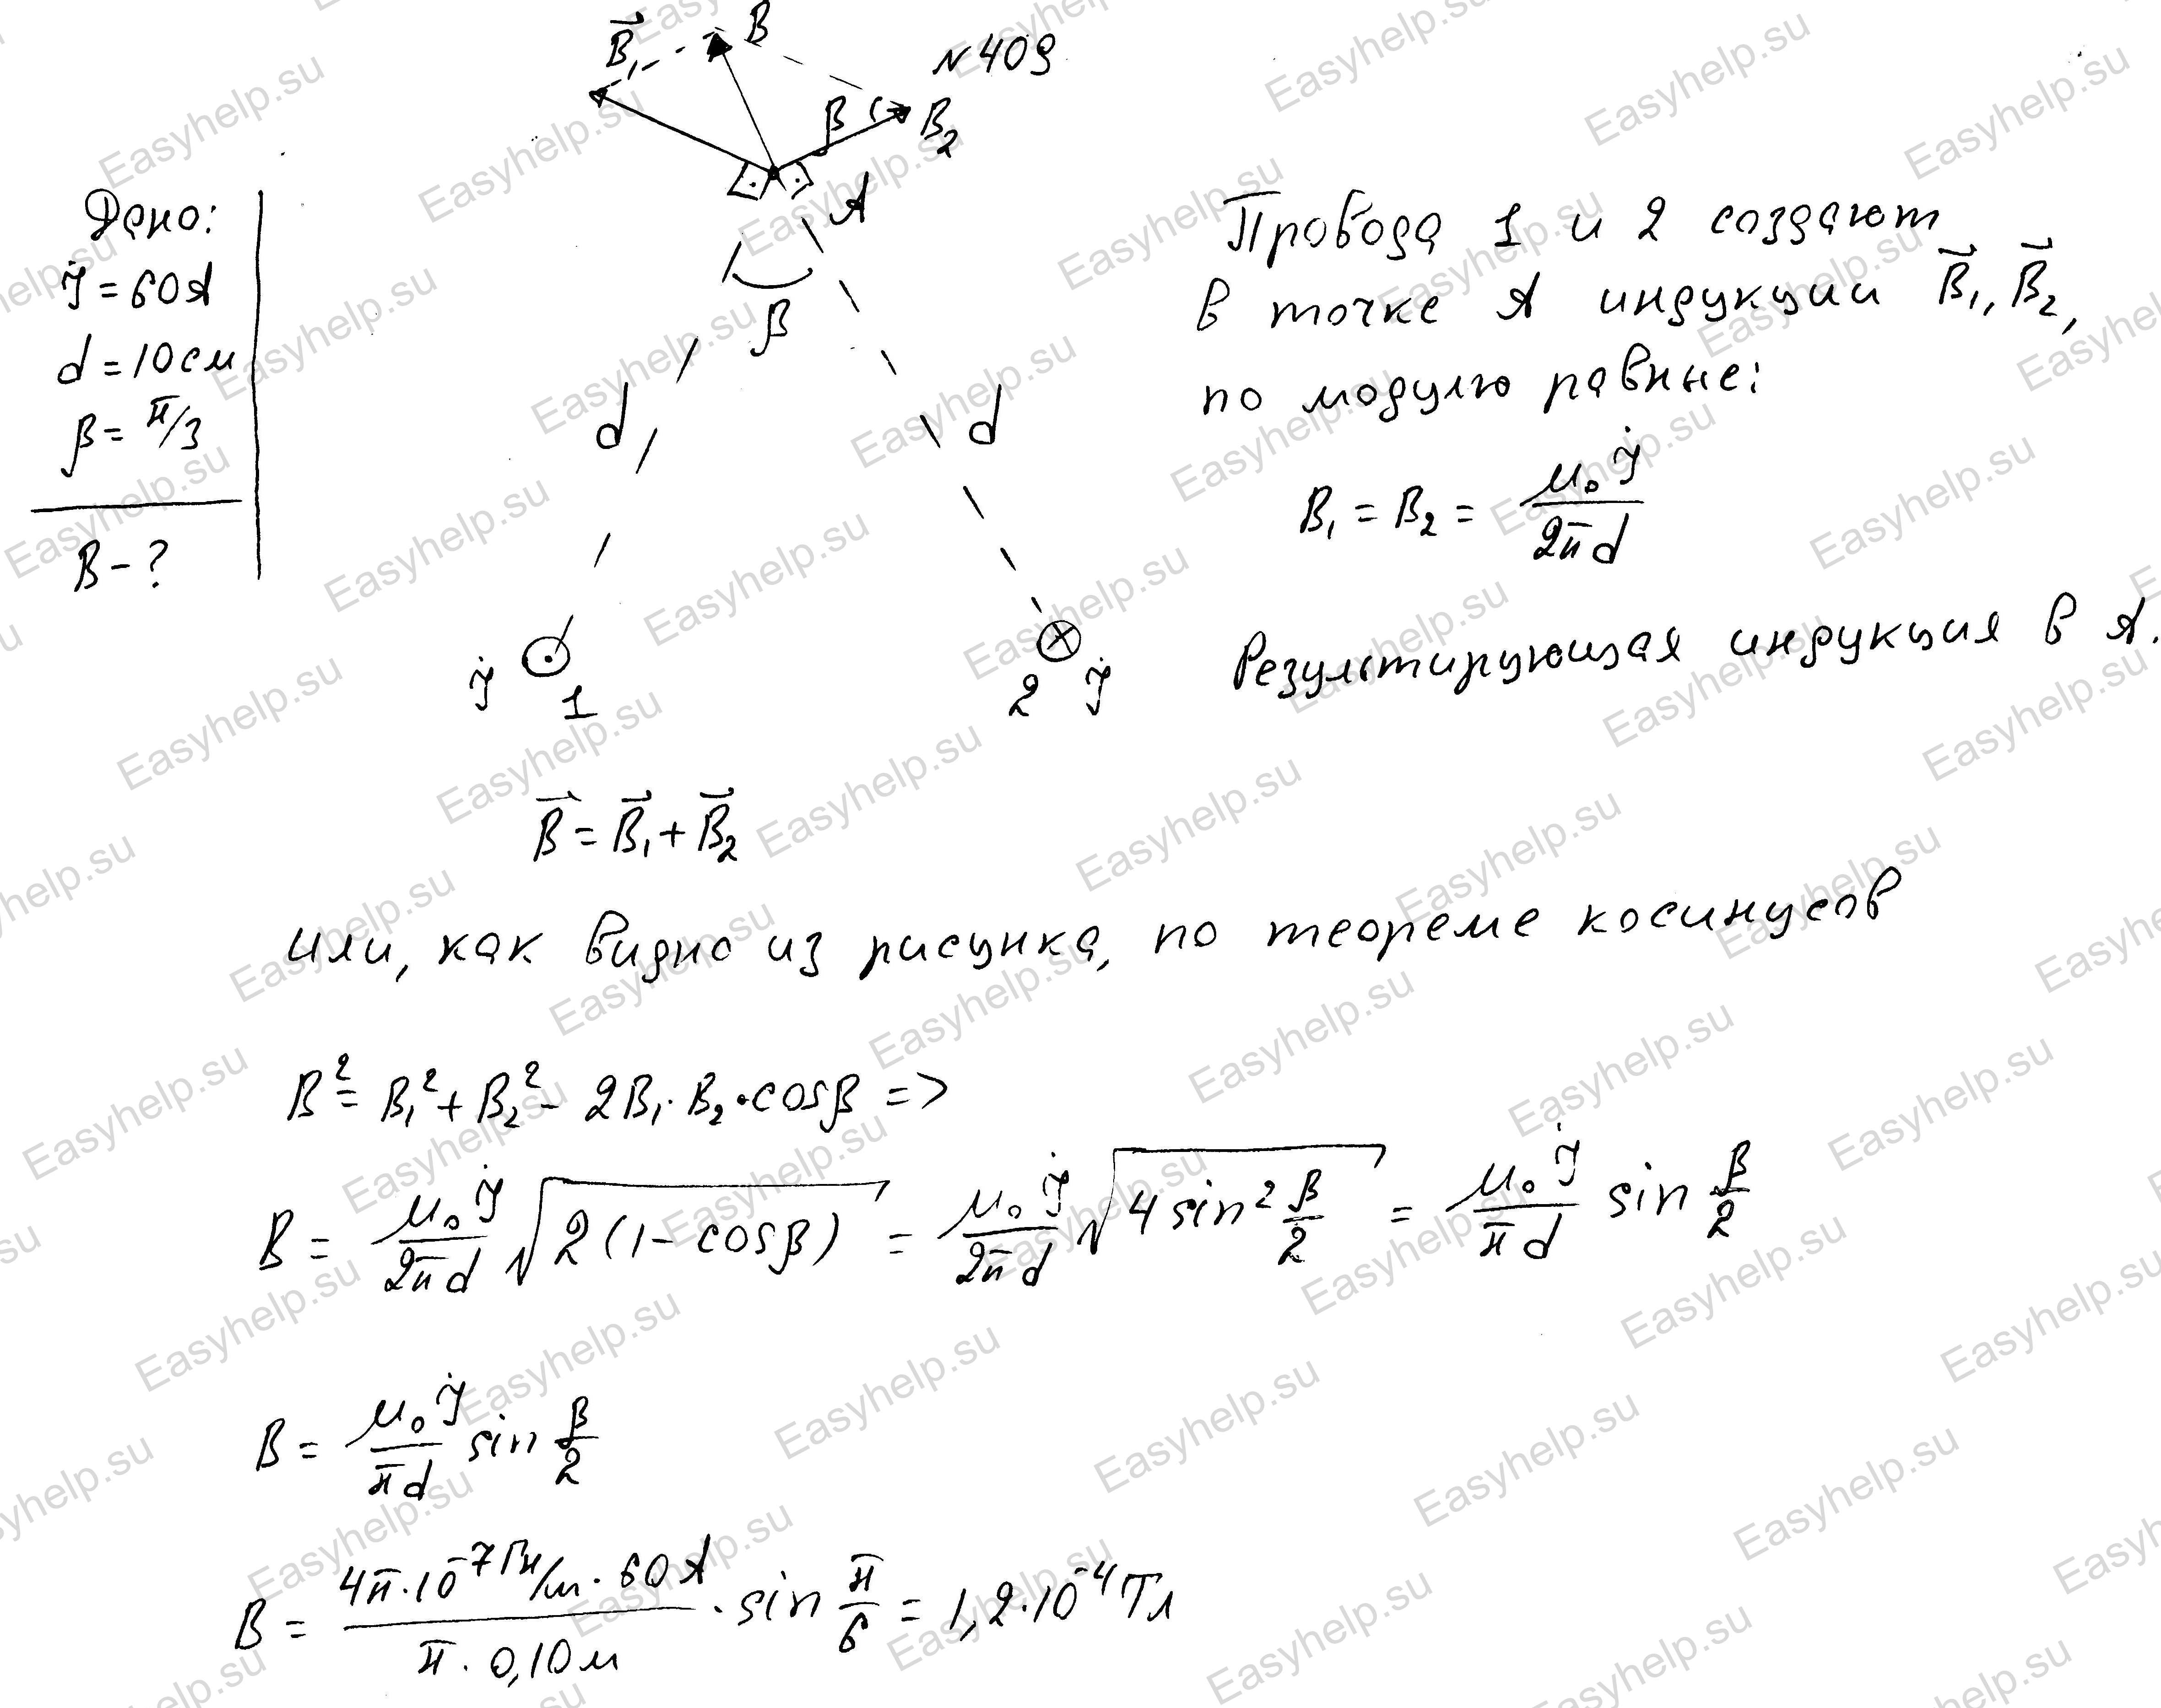 № 409
B⃗₁ B
β B₂
A
Дано:
J = 60 А
d = 10 см
β = π/3
B - ?
β
d d
J 1 2 J
Провода 1 и 2 создают
в точке А индукции B⃗₁, B⃗₂,
по модулю равные:
B₁ = B₂ = μ₀J / 2πd
Результирующая индукция в А.
B⃗ = B⃗₁ + B⃗₂
или, как видно из рисунка, по теореме косинусов
B² = B₁² + B₂² - 2B₁·B₂·cosβ =>
B = μ₀J/2πd √2(1 - cosβ) = μ₀J/2πd √4 sin² β/2 = μ₀J/πd sin β/2
B = μ₀J/πd sin β/2
B = 4π·10⁻⁷ Гн/м · 60 А / π · 0,10 м · sin π/6 = 1,2·10⁻⁴ Тл
Easyhelp.su